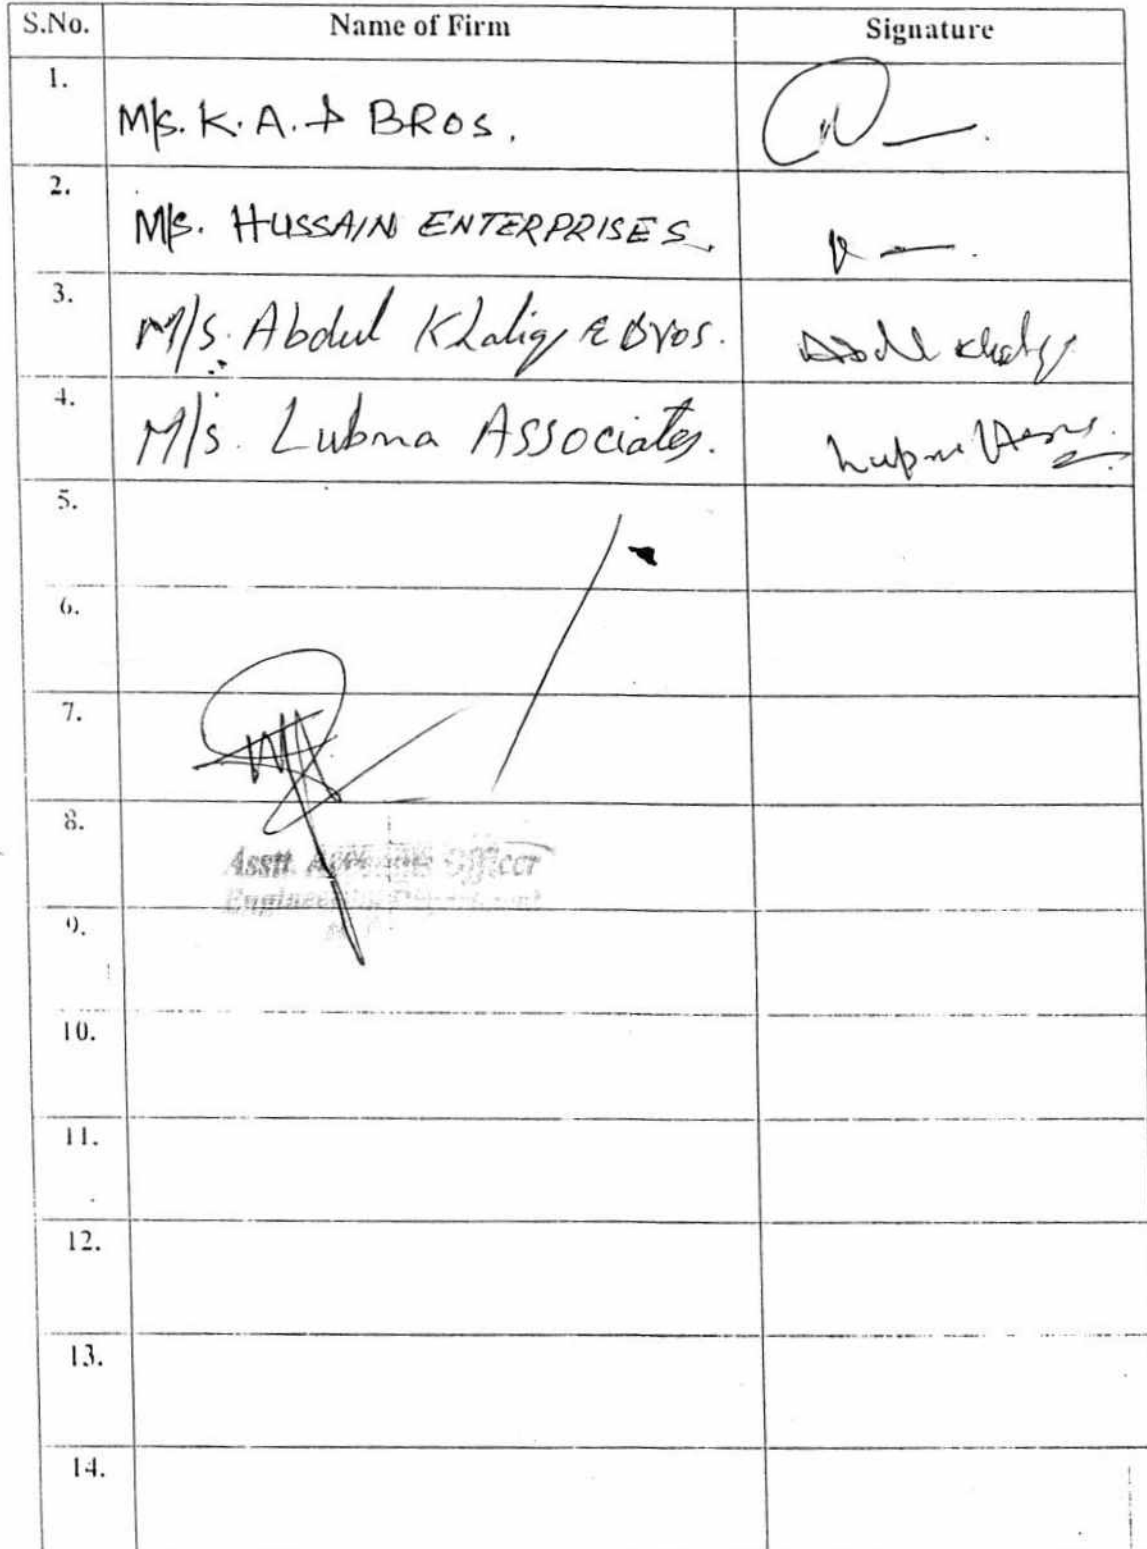 S.No. Name of Firm Signature
1. M/s. K.A. & BROS.
2. M/s. HUSSAIN ENTERPRISES.
3. M/s. Abdul Khaliq & Bros. Abdul Khaliq
4. M/s. Lubna Associates.
5.
6.
7.
8.
Asstt. Accounts Officer
Engineering Department
9.
10.
11.
12.
13.
14.